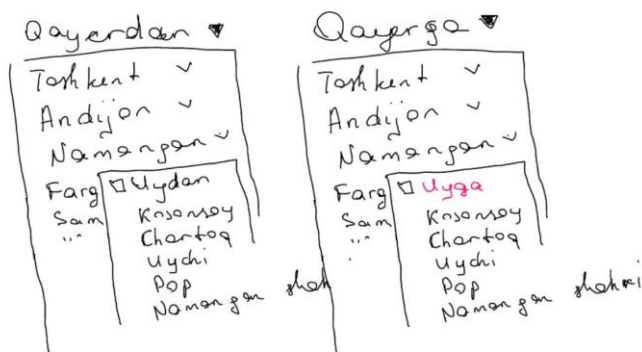 Qayerdan ▼
Toshkent ⌄
Andijon ⌄
Namangan ⌄
Farg
Sam
☐ Uydan
Kosonsoy
Chortoq
Uychi
Pop
Namangan shah
Qayerga ▼
Toshkent ⌄
Andijon ⌄
Namangan ⌄
Farg
Sam
☐ Uyga
Kosonsoy
Chortoq
Uychi
Pop
Namangan shahri